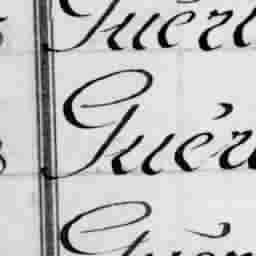 Guér
Guér
Guér